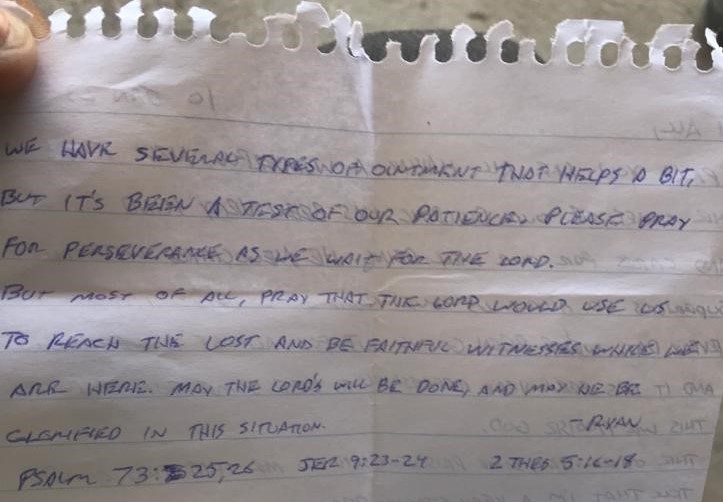 WE HAVE SEVERAL TYPES OF OINTMENT THAT HELPS A BIT,
BUT IT'S BEEN A TEST OF OUR PATIENCE. PLEASE PRAY
FOR PERSEVERANCE AS WE WAIT FOR THE LORD.
BUT MOST OF ALL, PRAY THAT THE LORD WOULD USE US
TO REACH THE LOST AND BE FAITHFUL WITNESSES WHILE WE
ARE HERE. MAY THE LORD'S WILL BE DONE, AND MAY HE BE
GLORIFIED IN THIS SITUATION.
- RYAN
PSALM 73:25,26 JER 9:23-24 2 THES 5:16-18